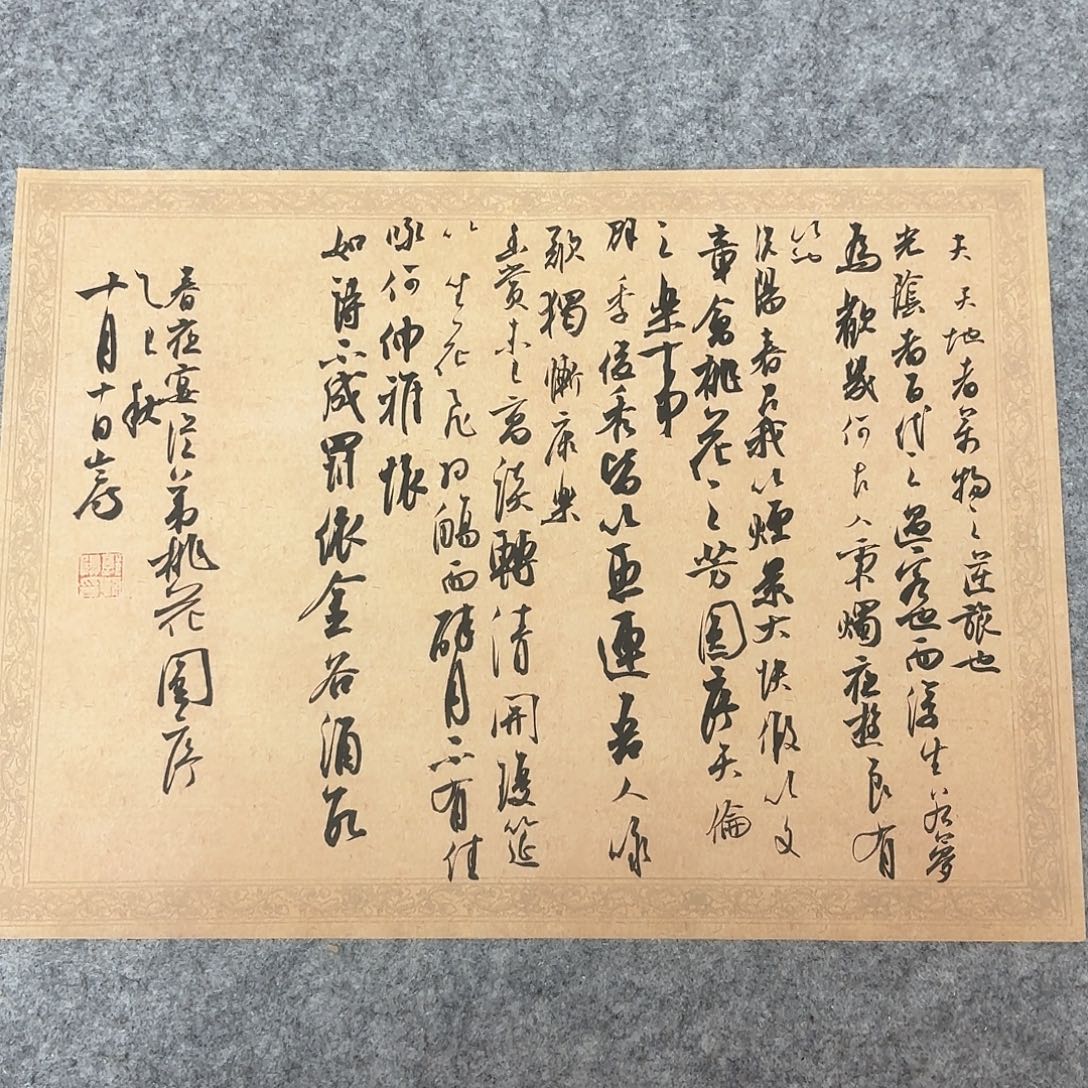 夫天地者萬物之逆旅也
光陰者百代之過客也而浮生若夢
為歡幾何古人秉燭夜遊良有
以也
況陽春召我以煙景大塊假以文
章會桃花之芳園序天倫
之樂事
群季俊秀皆以惠連吾人咏
歌獨慚康樂
幽賞未已高談轉清開瓊筵
以坐花飛羽觴而醉月不有佳
咏何伸雅懷
如詩不成罰依金谷酒數
春夜宴從弟桃花園序
乙巳秋
十月十日